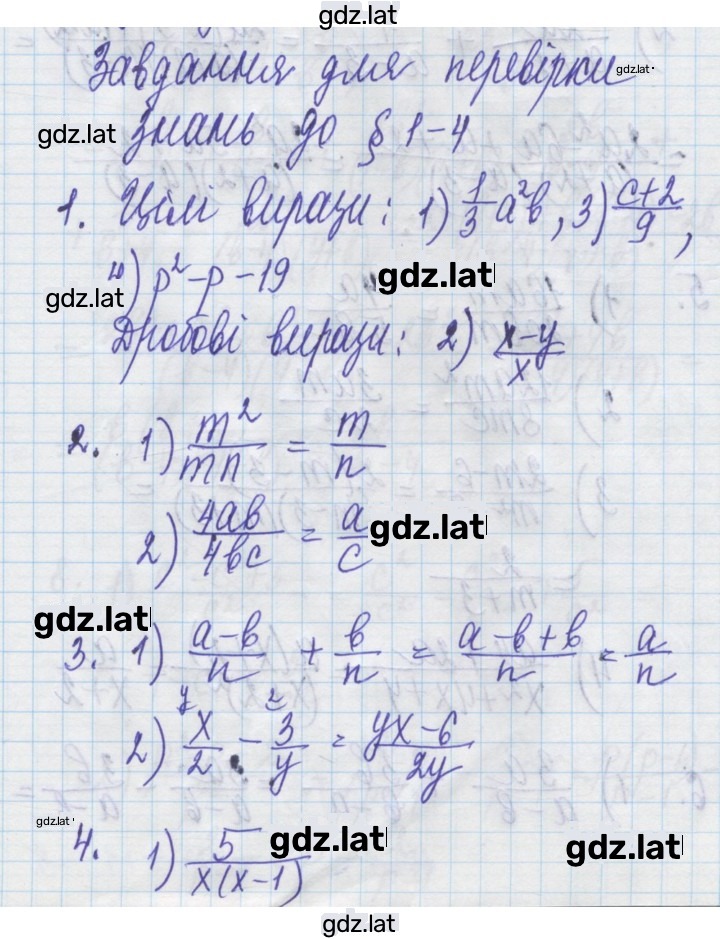 gdz.lat
Завдання для перевірки gdz.lat
gdz.lat Знань до § 1-4
1. Цілі вирази: 1) 1/3 a²b, 3) (c+2)/9,
gdz.lat 4) p²-p-19 gdz.lat
Дробові вирази: 2) (x-y)/x
2. 1) m²/mn = m/n
2) 4ab/4bc = a/c gdz.lat
gdz.lat
3. 1) (a-b)/n + b/n = (a-b+b)/n = a/n
2) x/2 (y) - 3/y (2) = (yx-6)/2y
gdz.lat
4. 1) 5/(x(x-1)) gdz.lat gdz.lat
gdz.lat